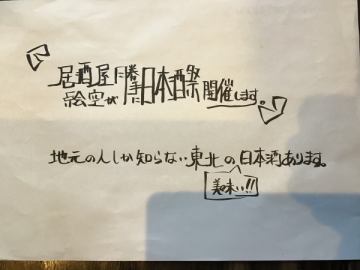 居酒屋絵空が勝手に日本酒祭開催します。
地元の人しか知らない東北の日本酒あります。
美味い!!